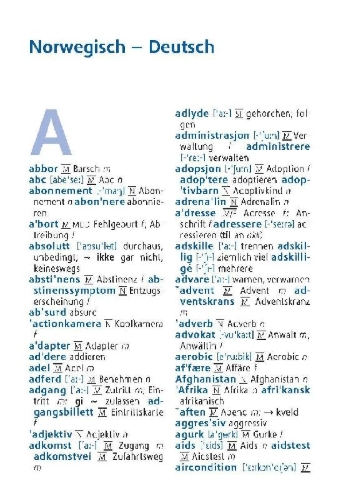 Norwegisch – Deutsch
A
abbor M Barsch m
abc [abe'se:] M Abc n
abonnement [-'maŋ] N Abon-
nement n abon'nere abonnie-
ren
a'bort M MED Fehlgeburt f; Ab-
treibung f
absolutt ['apsu'lʉt] durchaus,
unbedingt; ~ ikke gar nicht,
keineswegs
absti'nens M Abstinenz f ab-
stinenssymptom N Entzugs-
erscheinung f
ab'surd absurd
'actionkamera N Koolkamera
f
a'dapter M Adapter m
ad'dere addieren
adel M Adel m
adferd ['a:-] M Benehmen n
adgang ['a:-] M Zutritt m; Ein-
tritt m; gi ~ zulassen ad-
gangsbillett M Eintrittskarte
f
'adjektiv N Adjektiv n
adkomst ['a:-] M Zugang m
adkomstvei M Zufahrtsweg
m
adlyde ['a:-] gehorchen, fol-
gen
administrasjon [-'ʃu:n] M Ver-
waltung f administrere
[-'re:-] verwalten
adopsjon [-'ʃu:n] M Adoption f
adop'tere adoptieren adop-
'tivbarn N Adoptivkind n
adrena'lin N Adrenalin n
a'dresse M/F Adresse f; An-
schrift f adressere [-'se:rə] ad-
ressieren (til an akk)
adskille ['a:-] trennen adskil-
lig [-'ʃ-] ziemlich viel adskilli-
ge [-'ʃ-] mehrere
advare ['a:-] warnen, verwarnen
'advent M Advent m ad-
ventskrans M Adventskranz
m
'adverb N Adverb n
advokat [-vu'ka:t] M Anwalt m,
Anwältin f
aerobic [e'rɔbik] M Aerobic n
af'fære M Affäre f
Afghanistan N Afghanistan n
'Afrika N Afrika n afri'kansk
afrikanisch
'aften M Abend m; → kveld
aggres'siv aggressiv
agurk [a'gʉrk] M Gurke f
aids ['eids] M Aids n aidstest
M Aidstest m
aircondition M